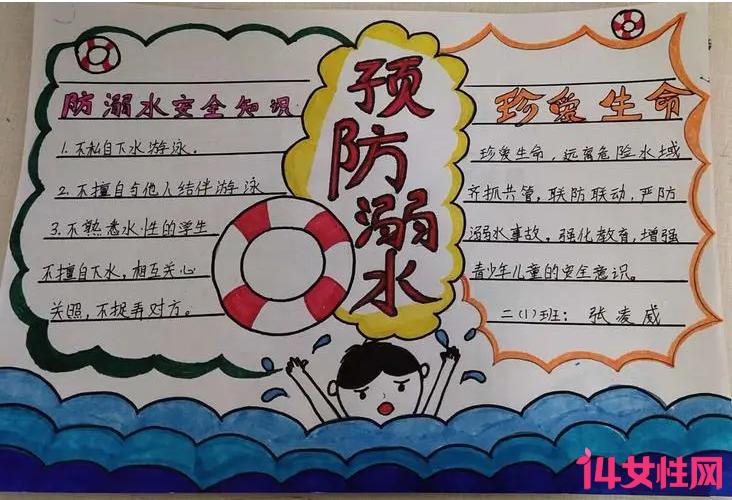 防溺水安全知识
1.不私自下水游泳。
2.不擅自与他人结伴游泳
3.不熟悉水性的学生
不擅自下水,相互关心
关照,不捉弄对方。
预防溺水
珍爱生命
珍爱生命,远离危险水域
齐抓共管,联防联动,严防
溺水事故,强化教育,增强
青少年儿童的安全意识。
二(1)班: 张凌威
14女性网